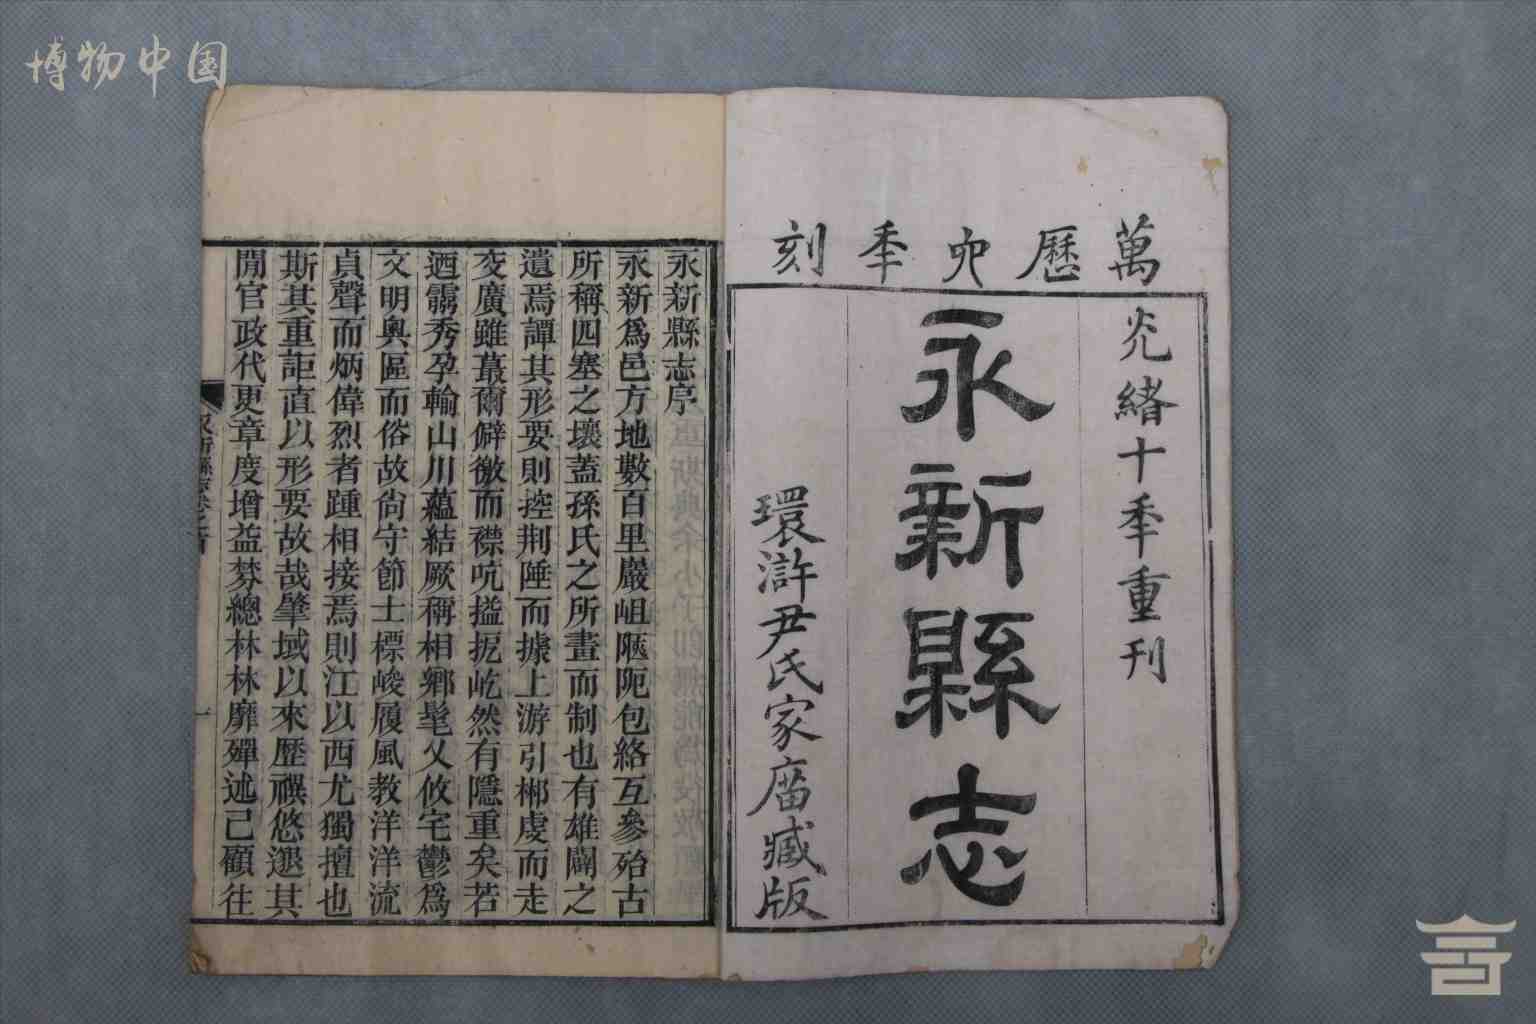 博物中国
萬曆六年刻
光緒十年重刊
永新縣志
環滸尹氏家廟藏版
永新縣志序
永新爲邑方地數百里巖岨陿阨包絡互參殆古
所稱四塞之壤蓋孫氏之所畫而制也有雄闢之
遺焉譚其形要則控荆陲而據上游引郴虔而走
交廣雖蕞爾僻徼而襟吭搤扼屹然有隱重矣若
迺霱秀孕輸山川蘊結厥稱相鄉髦乂攸宅鬱爲
文明奧區而俗故尙守節士標峻履風教洋洋流
貞聲而炳偉烈者踵相接焉則江以西尤獨擅也
斯其重詎直以形要故哉肇域以來歷禩悠邈其
閒官政代更章度增益棼總林林靡殫述已顧往